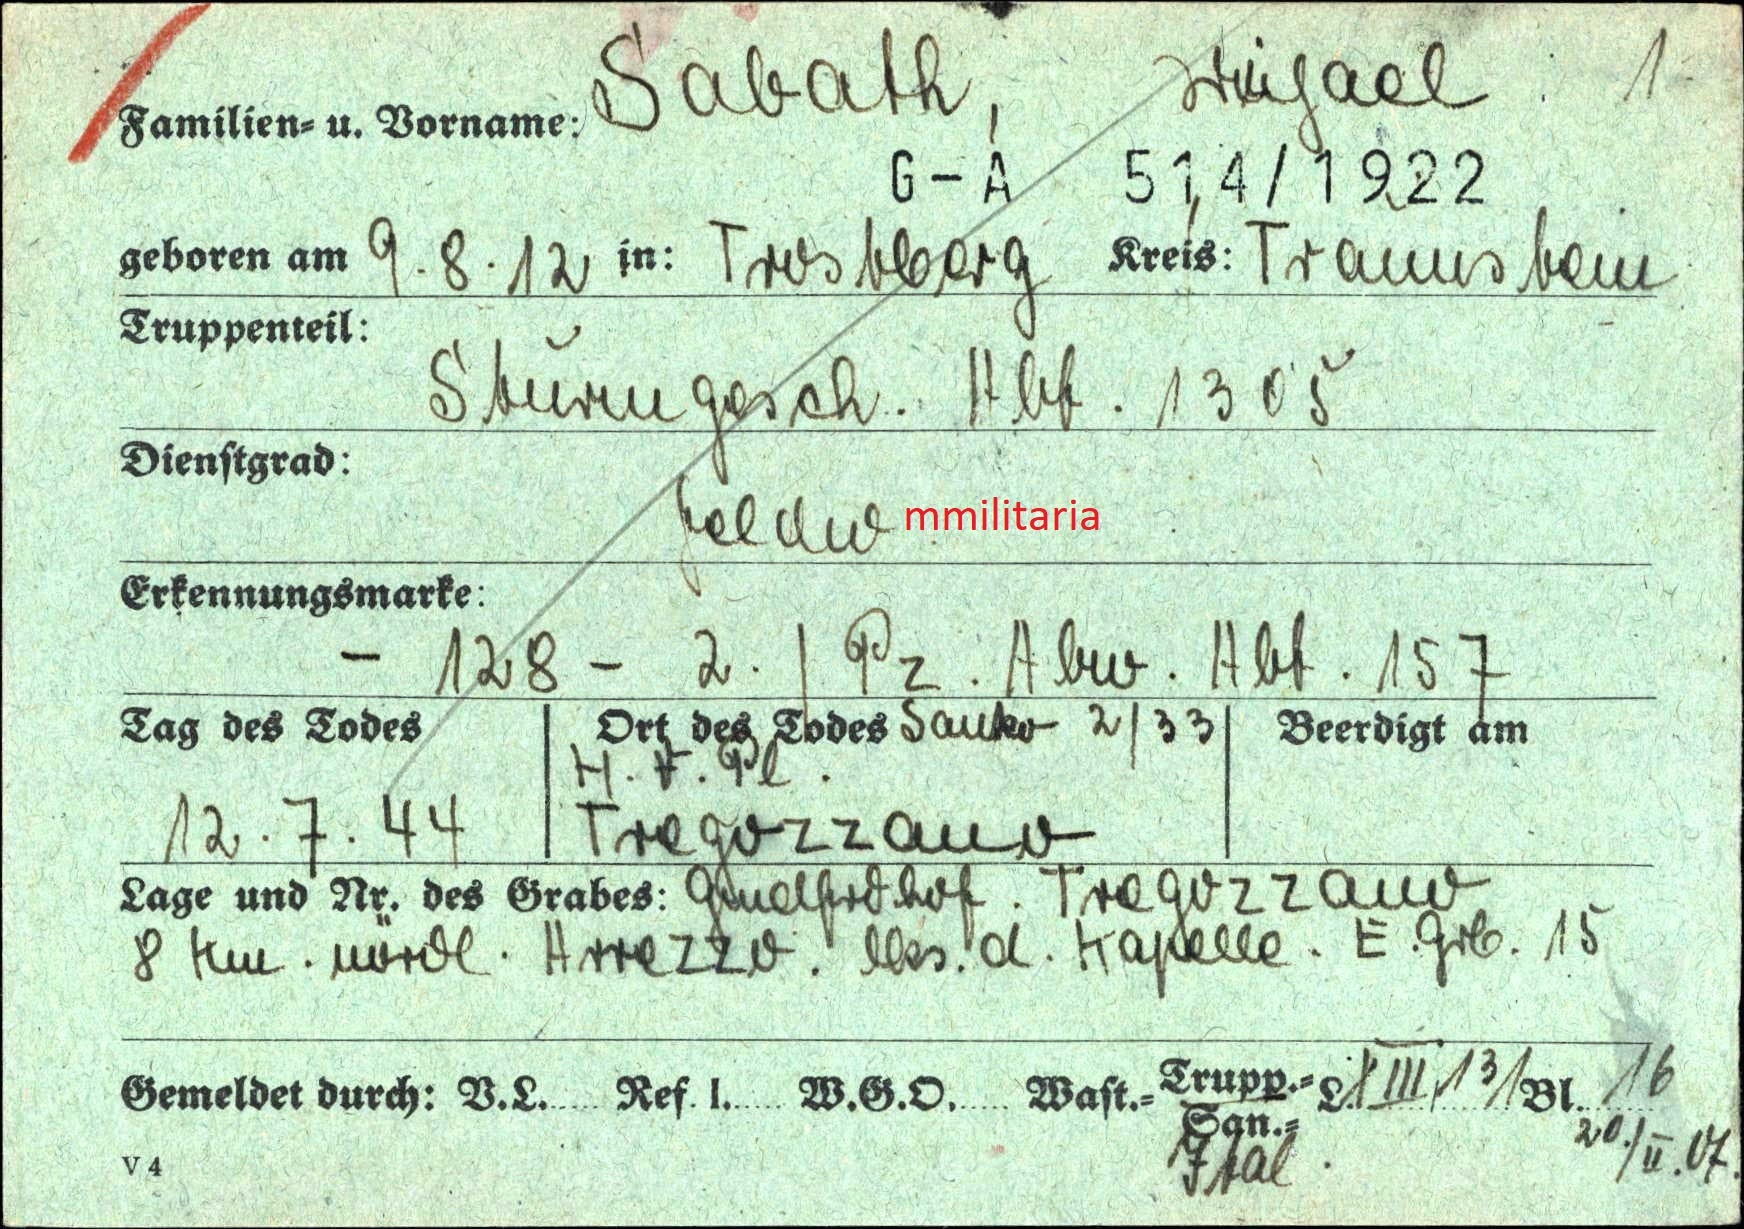 Familien- u. Vorname: Sabath, 1
G-A 514/1922
geboren am 9.8.12 in: Trostberg Kreis: Traunstein
Truppenteil:
Sturmgesch. Abt. 1305
Dienstgrad:
Feldw mmilitaria
Erkennungsmarke:
- 128 - 2./Pz. Abw. Abt. 157
Tag des Todes Ort des Todes Sanko 2/33 Beerdigt am
H.V.Pl.
12.7.44 Tregozzano
Lage und Nr. des Grabes: Tregozzano
8 km. nördl. Arrezzo. lks. d. Kapelle. E.Grb. 15
Gemeldet durch: V.L. Ref. I. W.G.O. Wast.= Trupp.= L. XIII/131 Bl. 16
San.= 20./II.07.
Ital.
V4